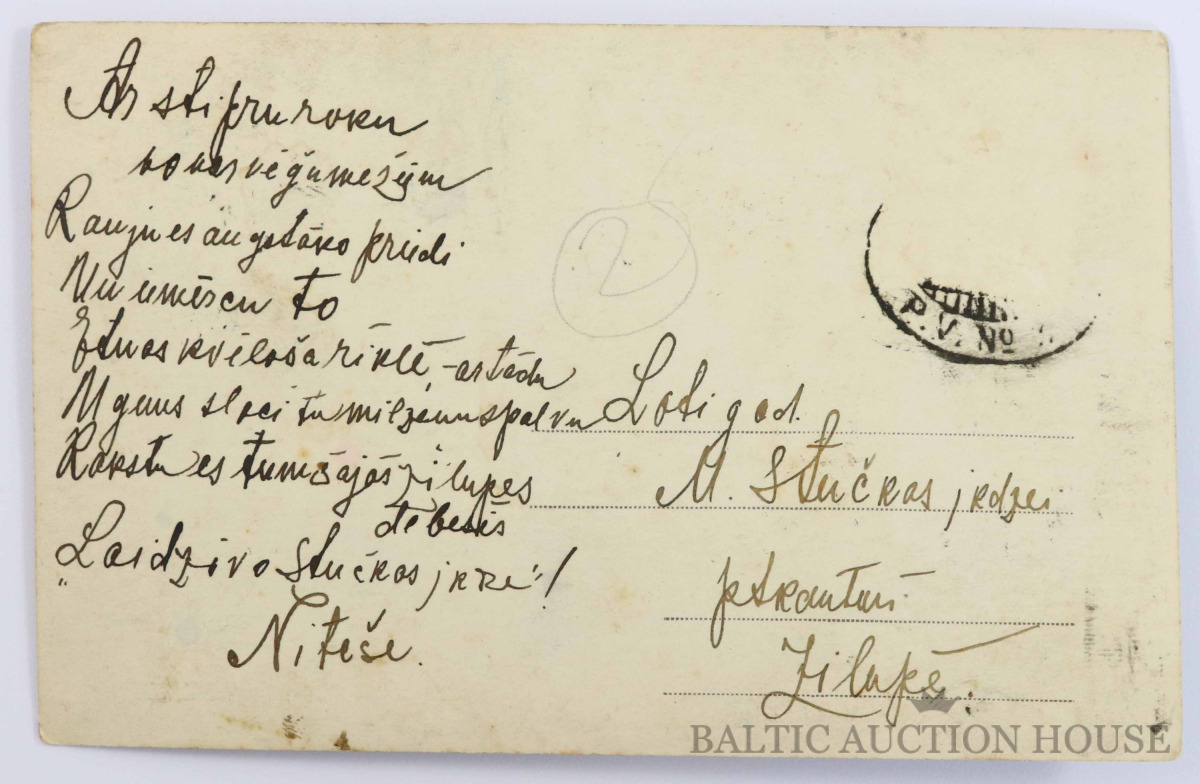 Ar stipru roku
no Norvēģu mežiem
Rauju es augstāko priedi
Un iemērcu to
Etnas kvēlošā rīklē, – ar tādu
Uguns slacītu milzenu spalvu
Rakstu es tumšajās Zilupes
debesīs
„Lai dzīvo Stučkas jkdze"!
Niteše.
2
P.V. No
Loti god.
M. Stučkas jkdzei
pt kantorī
Zilupē.
BALTIC AUCTION HOUSE